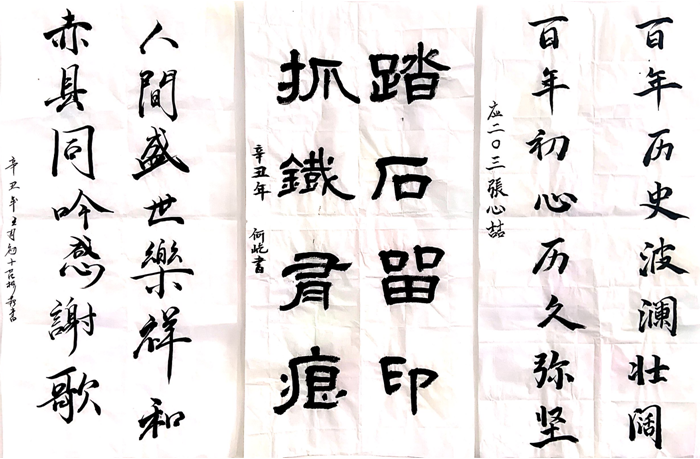 百年历史波澜壮阔
百年初心历久弥坚
应二〇三張心喆
踏石留印
抓鐵有痕
辛丑年 何屹書
人間盛世樂祥和
赤县同吟感謝歌
辛丑年五月初十